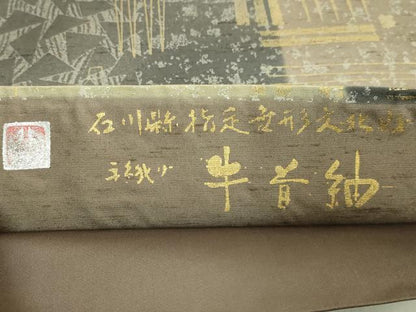 石川県指定無形文化財
手織り
牛首紬